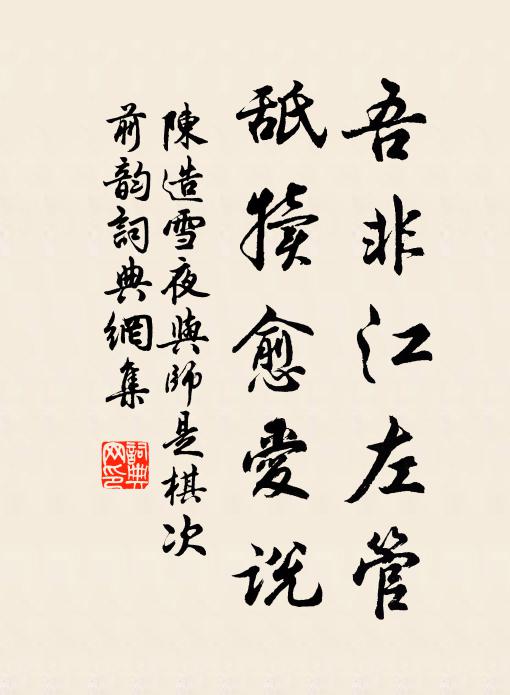 吾非江左管
舐犢愈愛説
陳造雪夜與師是棋次
前韵詞典網集
詞典網印